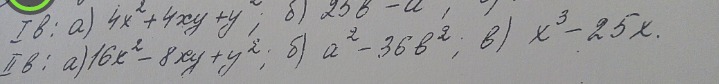 I в: а) 4x² + 4xy + y²; б) 25b² - a²;
II в: а) 16x² - 8xy + y²; б) a² - 36b²; в) x³ - 25x.